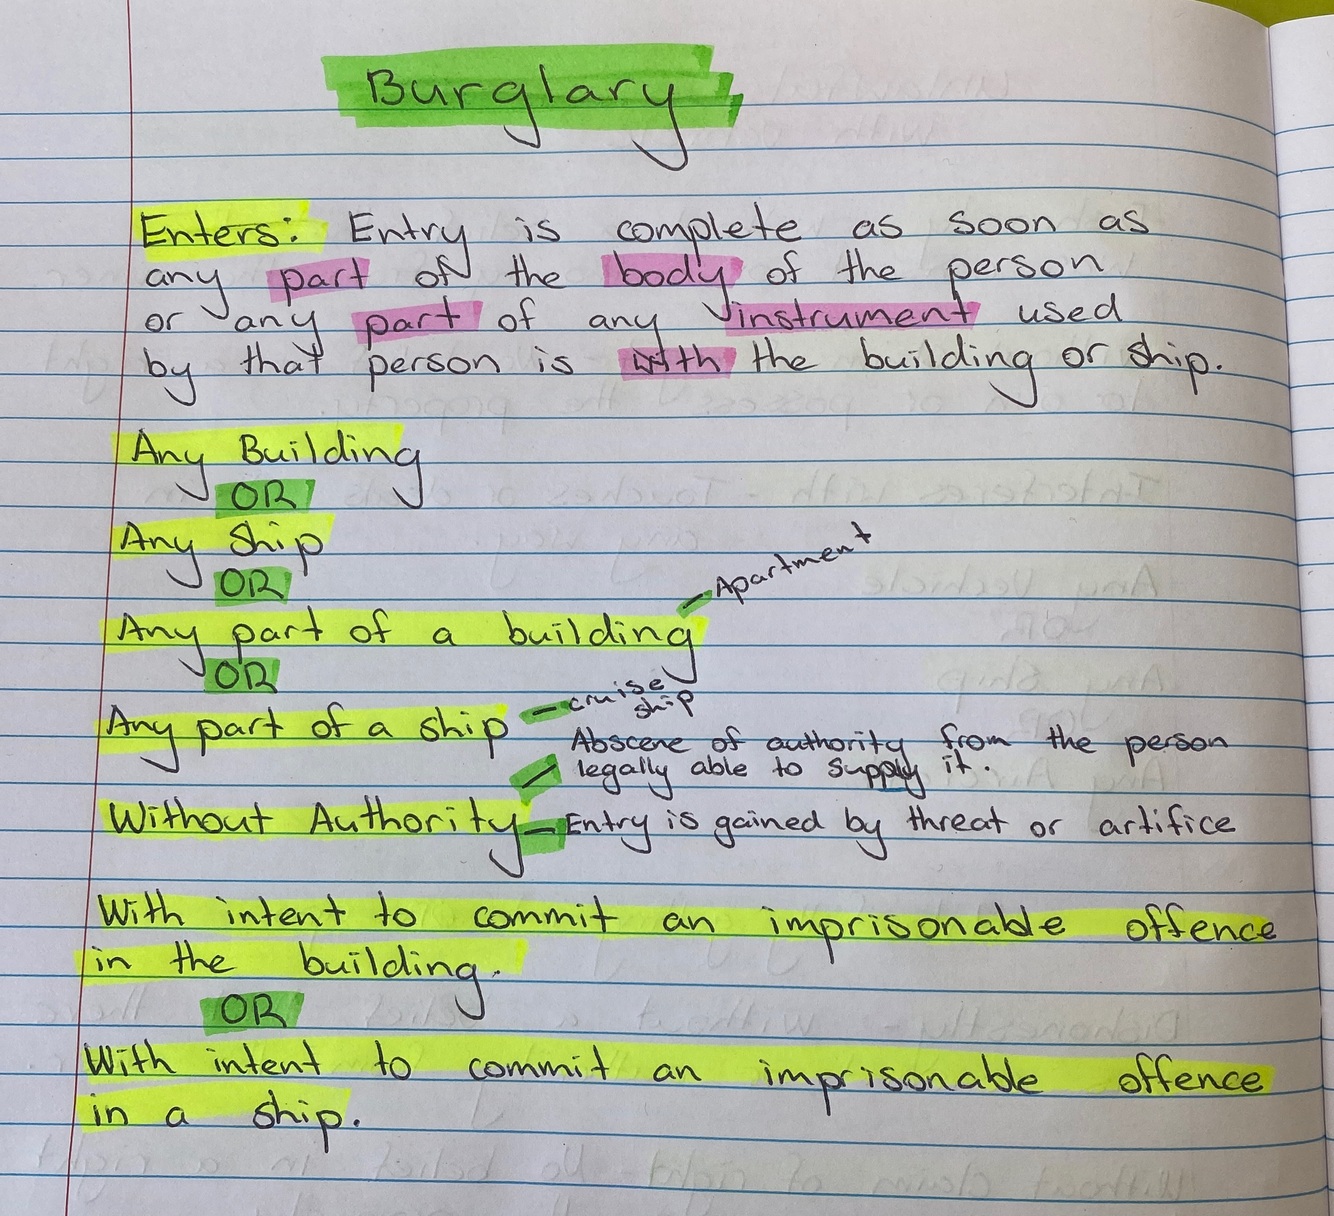 Burglary
Enters: Entry is complete as soon as
any part of the body of the person
or any part of any instrument used
by that person is with the building or ship.
Any Building
OR
Any Ship
OR
Any part of a building - Apartment
OR
Any part of a ship - cruise ship
Abscene of authority from the person
legally able to supply it.
Without Authority - Entry is gained by threat or artifice
With intent to commit an imprisonable offence
in the building.
OR
With intent to commit an imprisonable offence
in a ship.